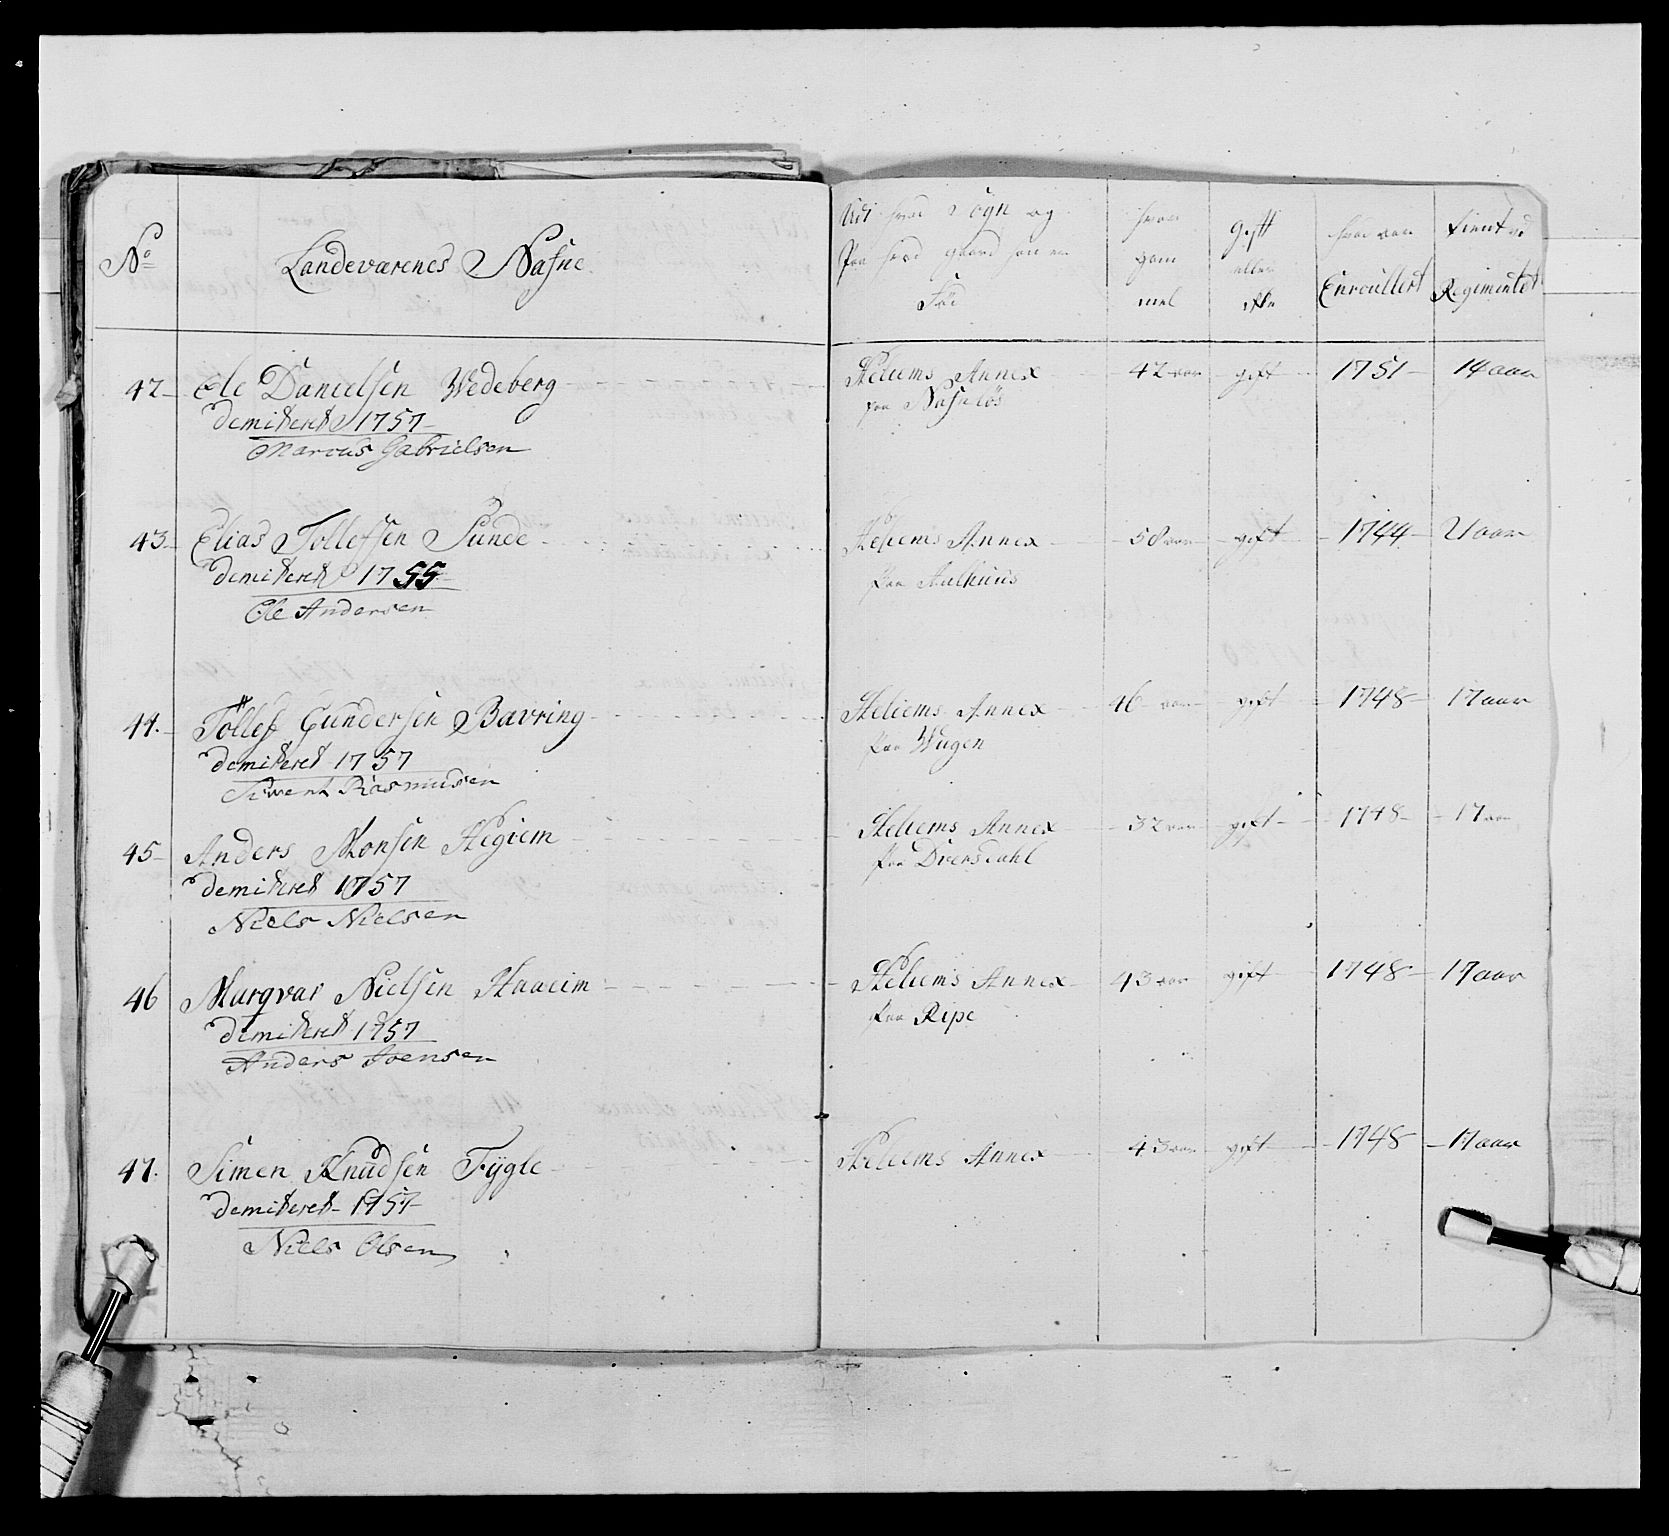 No Landeværenes Nafne Udi hvad Sogn og paa hvad gaard hand er Föd hvor gam mel gift eller ikke hvor naar Enroullert tient ved Regimentet
42 Ole Danielsen Wedeberg Heliems Annex 42 aar gift 1751 14 aar
demiteret 1757 paa
Marcus Gabrielsen
43 Elias Tollefsen Sunde Heliems Annex 50 aar gift 1744 21 aar
demiteret 1755 paa Aulhuus
Ole Andersen
44. Tollef Gundersen Bavring Heliems Annex 46 aar gift 1748 17 aar
demiteret 1757 paa Wugen
Siwert Rasmusen
45 Anders Monsen Hegiem Heliems Annex 32 aar gift 1748 17 aar
demiteret 1757 paa Diversdahl
Niels Nielsen
46 Marqvar Nielsen Haaeim Heliems Annex 43 aar gift 1748 17 aar
demiteret 1757 paa Ripe
Anders Joensen
47. Simen Knudsen Fygle Heliems Annex 43 aar gift 1748 17 aar
demiteret 1757
Niels Olsen